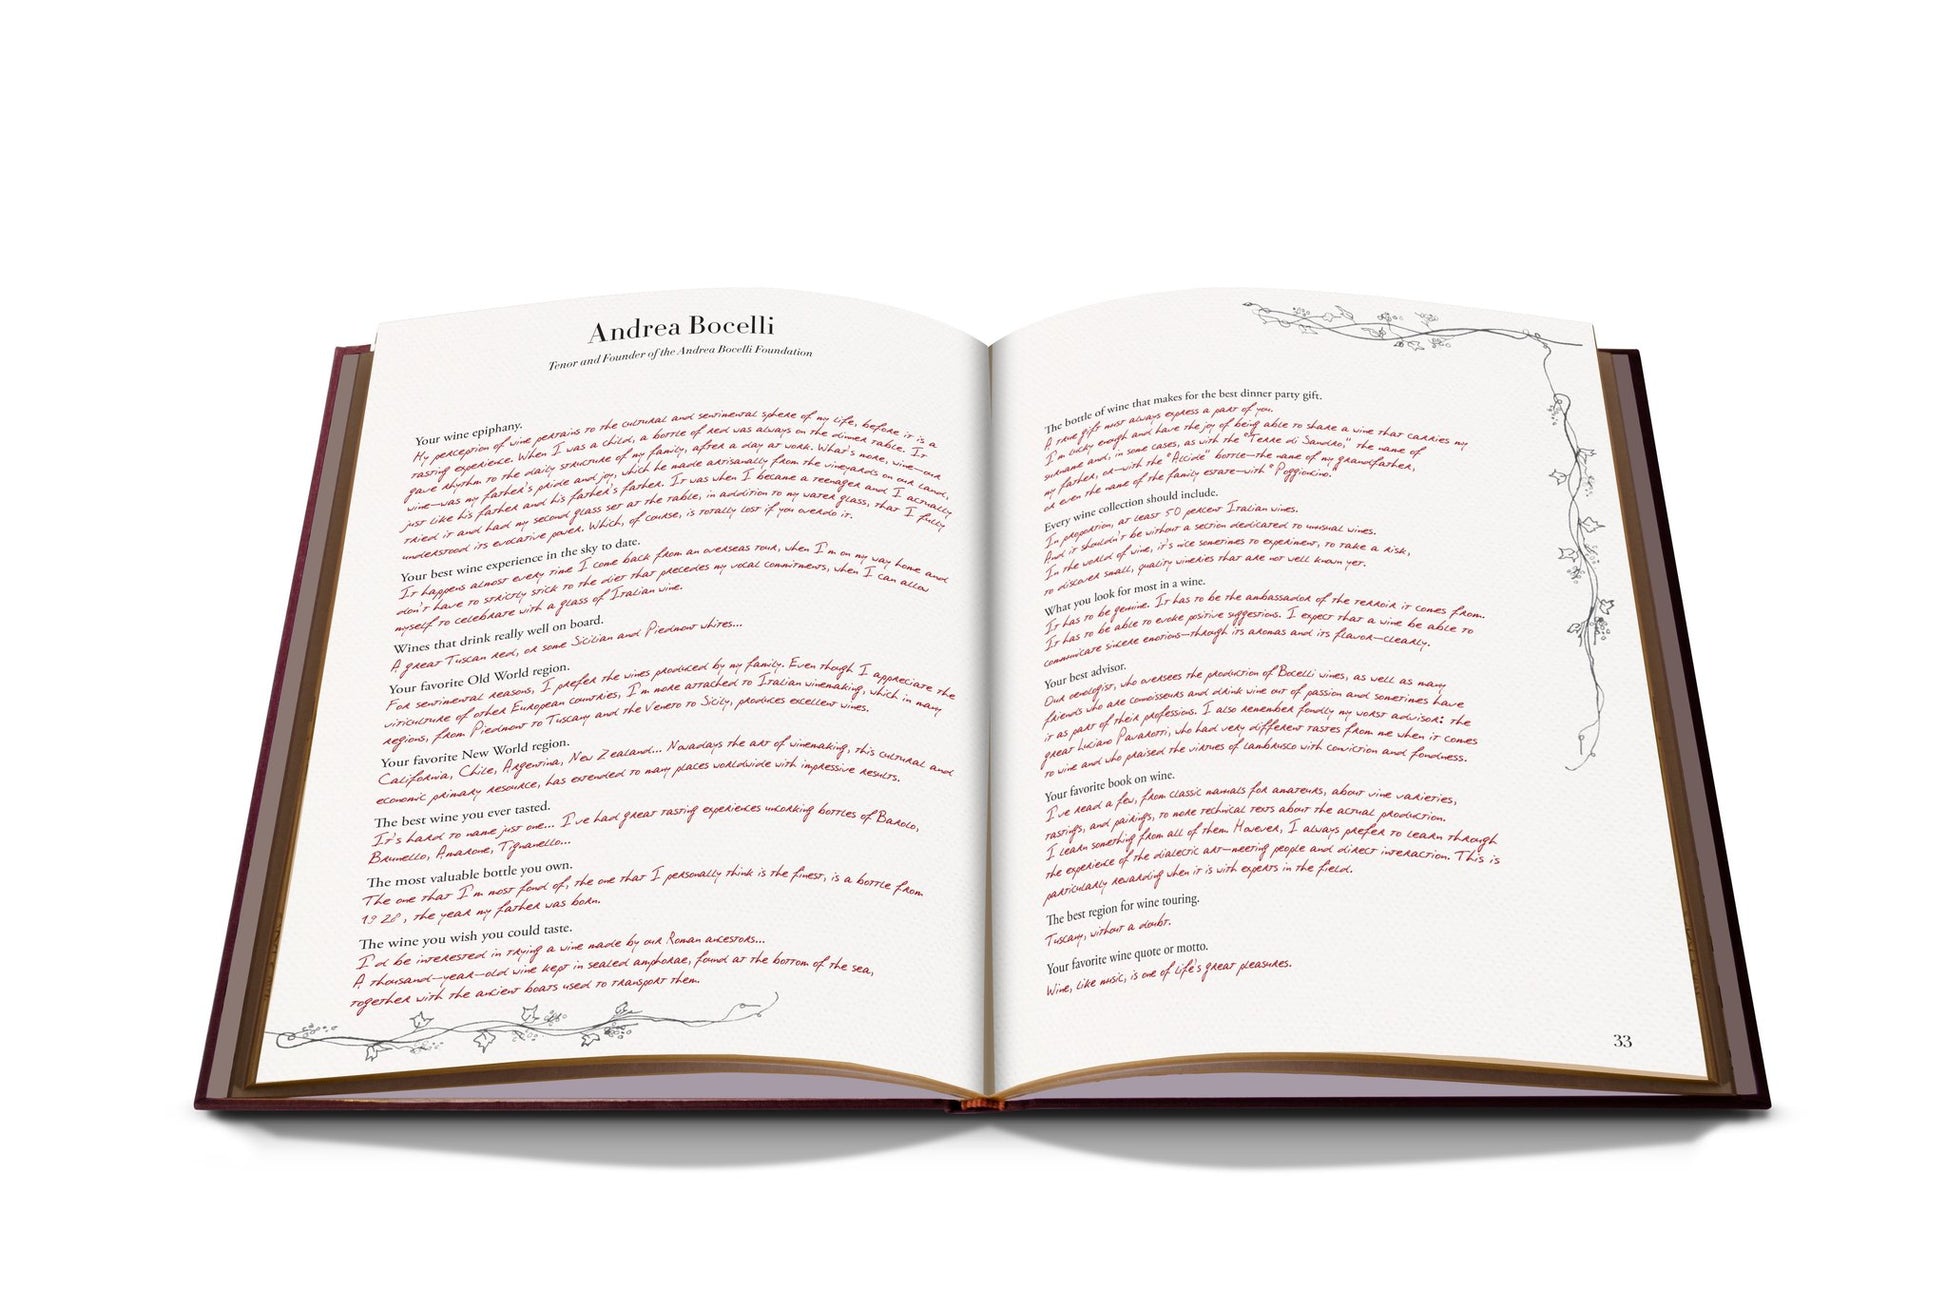 Andrea Bocelli
Tenor and Founder of the Andrea Bocelli Foundation
Your wine epiphany.
My perception of wine pertains to the cultural and sentimental sphere of my life, before it is a
tasting experience. When I was a child, a bottle of red was always on the dinner table. It
gave rhythm to the daily structure of my family, after a day at work. What's more, wine—our
wine—was my father's pride and joy, which he made artisanally from the vineyards on our land,
just like his father and his father's father. It was when I became a teenager and I actually
tried it and had my second glass set at the table, in addition to my water glass, that I fully
understood its evocative power. Which, of course, is totally lost if you overdo it.
Your best wine experience in the sky to date.
It happens almost every time I come back from an overseas tour, when I'm on my way home and
don't have to strictly stick to the diet that precedes my vocal commitments, when I can allow
myself to celebrate with a glass of Italian wine.
Wines that drink really well on board.
A great Tuscan red, or some Sicilian and Piedmont whites...
Your favorite Old World region.
For sentimental reasons, I prefer the wines produced by my family. Even though I appreciate the
viticulture of other European countries, I'm more attached to Italian winemaking, which in many
regions, from Piedmont to Tuscany and the Veneto to Sicily, produces excellent wines.
Your favorite New World region.
California, Chile, Argentina, New Zealand... Nowadays the art of winemaking, this cultural and
economic primary resource, has extended to many places worldwide with impressive results.
The best wine you ever tasted.
It's hard to name just one... I've had great tasting experiences uncorking bottles of Barolo,
Brunello, Amarone, Tignanello...
The most valuable bottle you own.
The one that I'm most fond of, the one that I personally think is the finest, is a bottle from
1928, the year my father was born.
The wine you wish you could taste.
I'd be interested in trying a wine made by our Roman ancestors...
A thousand-year-old wine kept in sealed amphorae, found at the bottom of the sea,
together with the ancient boats used to transport them.
The bottle of wine that makes for the best dinner party gift.
A true gift must always express a part of you.
I'm lucky enough and have the joy of being able to share a wine that carries my
surname and, in some cases, as with the "Terre di Sandro," the name of
my father, or—with the "Alcide" bottle—the name of my grandfather,
or even the name of the family estate—with "Poggioncino."
Every wine collection should include.
In proportion, at least 50 percent Italian wines.
And it shouldn't be without a section dedicated to unusual wines.
In the world of wine, it's nice sometimes to experiment, to take a risk,
to discover small, quality wineries that are not well known yet.
What you look for most in a wine.
It has to be genuine. It has to be the ambassador of the terroir it comes from.
It has to be able to evoke positive suggestions. I expect that a wine be able to
communicate sincere emotions—through its aromas and its flavor—clearly.
Your best advisor.
Our oenologist, who oversees the production of Bocelli wines, as well as many
friends who are connoisseurs and drink wine out of passion and sometimes have
it as part of their profession. I also remember fondly my worst advisor: the
great Luciano Pavarotti, who had very different tastes from me when it comes
to wine and who praised the virtues of lambrusco with conviction and fondness.
Your favorite book on wine.
I've read a few, from classic manuals for amateurs, about wine varieties,
tastings, and pairings, to more technical texts about the actual production.
I learn something from all of them. However, I always prefer to learn through
the experience of the dialectic art—meeting people and direct interaction. This is
particularly rewarding when it is with experts in the field.
The best region for wine touring.
Tuscany, without a doubt.
Your favorite wine quote or motto.
Wine, like music, is one of life's great pleasures.
33